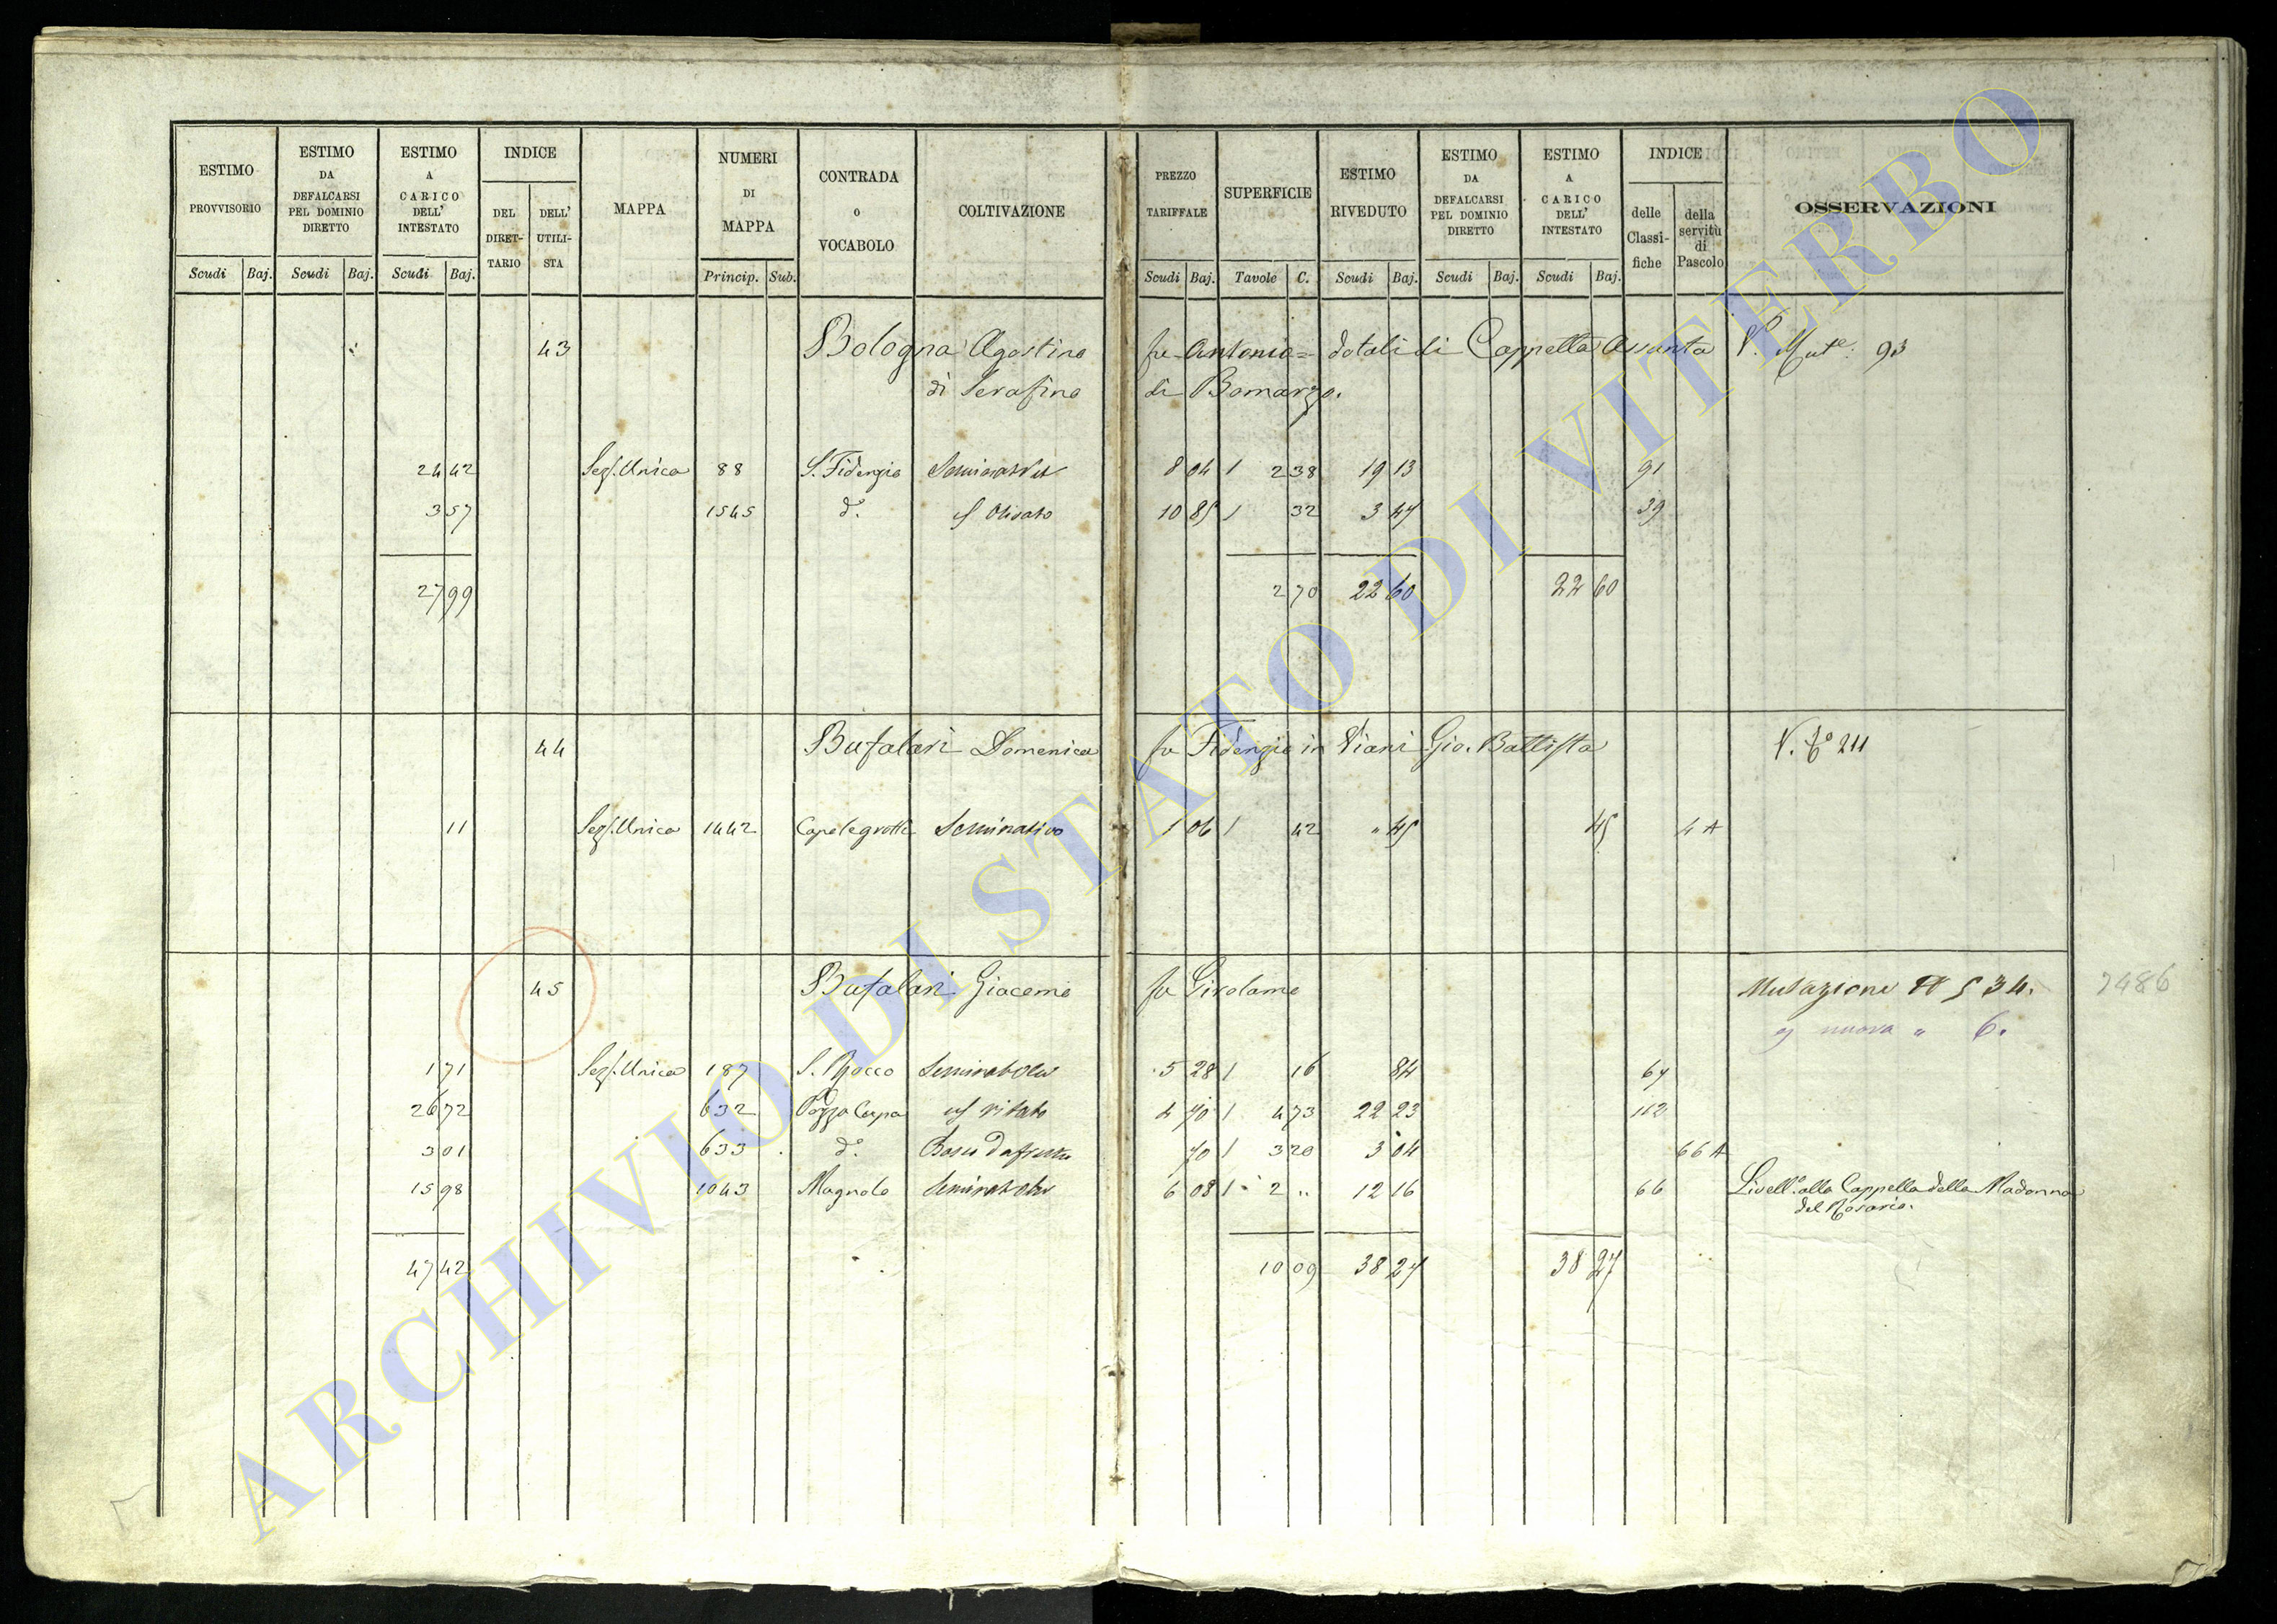 ESTIMO PROVVISORIO
ESTIMO DA DEFALCARSI PEL DOMINIO DIRETTO
ESTIMO A CARICO DELL' INTESTATO
INDICE
DEL DIRET-TARIO
DELL' UTILI-STA
MAPPA
NUMERI DI MAPPA
CONTRADA o VOCABOLO
COLTIVAZIONE
PREZZO TARIFFALE
SUPERFICIE
ESTIMO RIVEDUTO
ESTIMO DA DEFALCARSI PEL DOMINIO DIRETTO
ESTIMO A CARICO DELL' INTESTATO
INDICE
delle Classi-fiche
della servitù di Pascolo
OSSERVAZIONI
Scudi Baj. Scudi Baj. Scudi Baj. Princip. Sub. Scudi Baj. Tavole C. Scudi Baj. Scudi Baj. Scudi Baj.
43 Bologna Agostino fu Antonio = dotali di Cappella Assunta V. Mut.e 93
di Serafino di Bomarzo.
24 42 Sez. Unica 88 S. Fidenzio 8 04 1 2 38 19 13 91
3 57 1545 d.o Olivato 10 85 1 32 3 47 39
27 99 2 70 22 60 22 60
44 Bufalari Domenica fu Fidenzio in Viani Gio. Battista V. 211
11 Sez. Unica 1442 Capelegrotte Seminativo 1 06 1 42 " 45 45 4 A
45 Bufalari Giacomo fu Girolamo Mutazione N 534. 7486
nuova " 6.
1 71 Sez. Unica 187 S. Rocco 5 28 1 16 84 67
26 72 632 Pozzo Cupo vitato 4 70 1 4 73 22 23 112
3 01 633 d.o Bosco 70 1 3 20 3 04 66 A
15 98 1043 Magnolo 6 08 1 2 " 12 16 66 Livell.o alla Cappella della Madonna
del Rosario.
47 42 10 09 38 27 38 27
ARCHIVIO DI STATO DI VITERBO